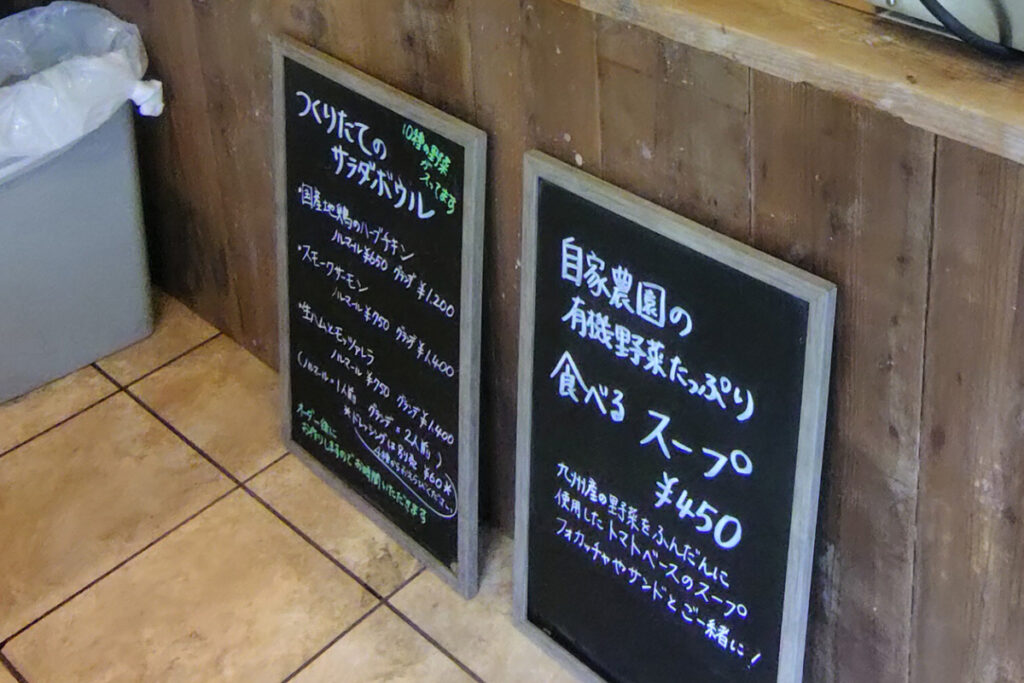 つくりたての
サラダボウル
10種の野菜
入ってます
・国産地鶏のハーブチキン
ノルマール¥650 グランデ¥1,200
・スモークサーモン
ノルマール¥750 グランデ¥1,400
・生ハムとモッツァレラ
ノルマール¥750 グランデ¥1,400
(ノルマール=1人前 グランデ=2人前)
※ドレッシングは別売 ¥60※
4種からおえらびください
オーダー後に
お作りしますのでお時間いただきます
自家農園の
有機野菜たっぷり
食べる スープ
¥450
九州産の野菜をふんだんに
使用したトマトベースのスープ
フォカッチャやサンドとご一緒に!